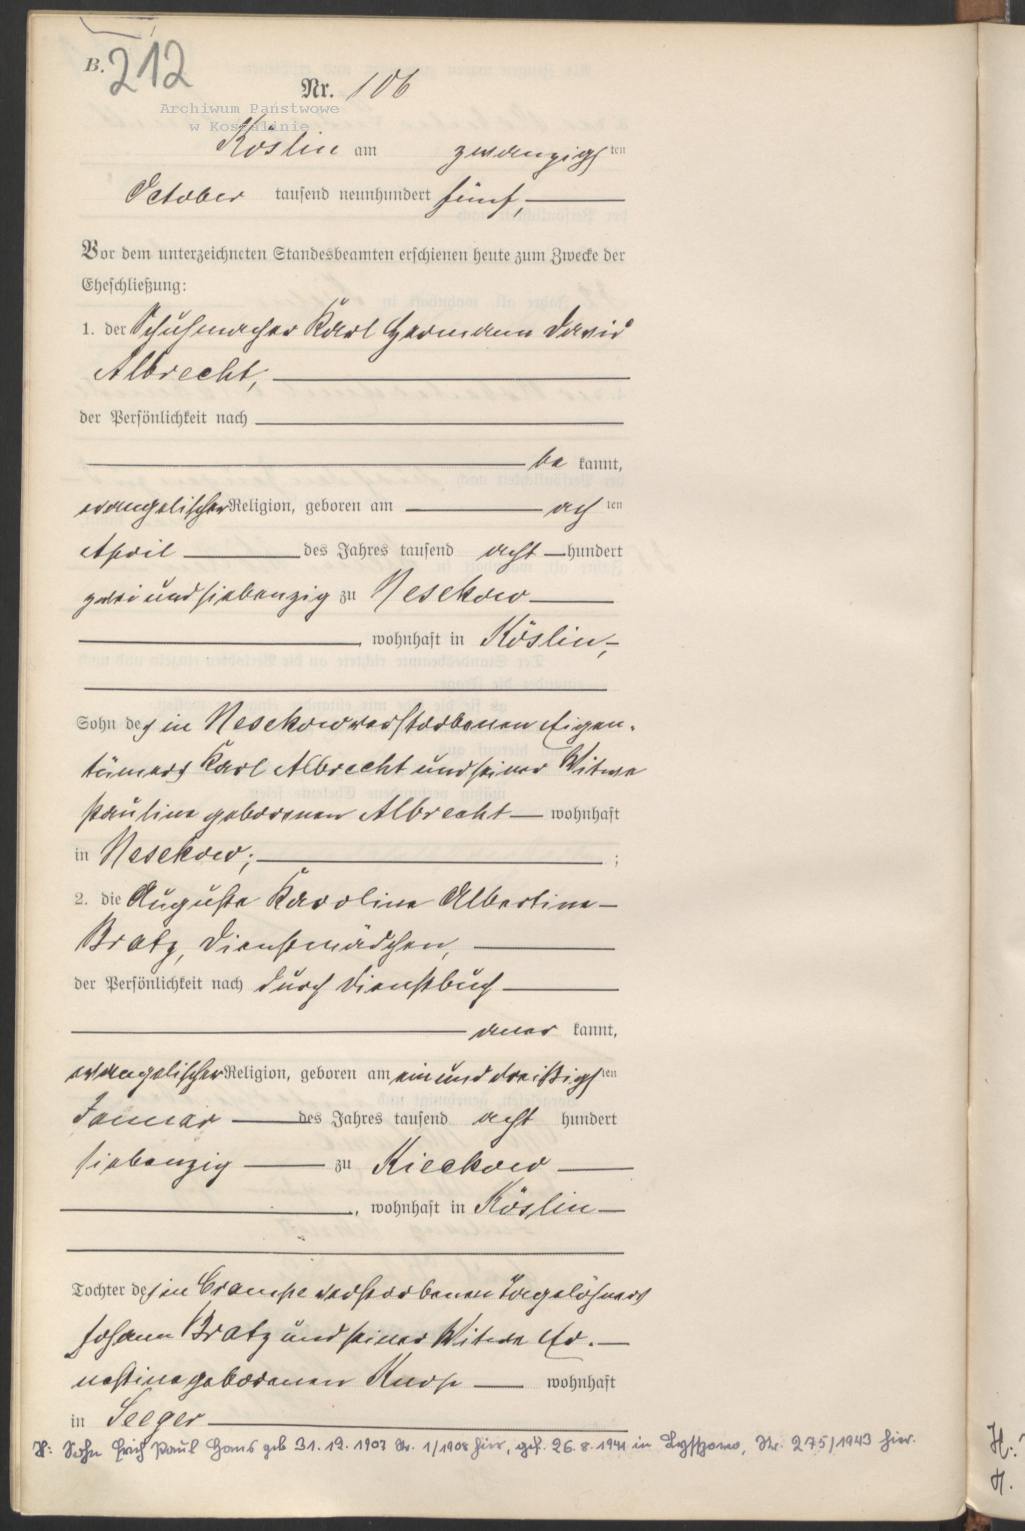 B.
212
Nr. 106
Archiwum Państwowe
w Koszalinie
Köslin am zwanzigsten
October tausend neunhundert fünf,
Vor dem unterzeichneten Standesbeamten erschienen heute zum Zwecke der
Eheschließung:
1. der Schuhmacher Karl Hermann David
Albrecht,
der Persönlichkeit nach
be kannt,
evangelischer Religion, geboren am achten
April des Jahres tausend acht hundert
zwei und siebenzig zu Nesekow
, wohnhaft in Köslin,
Sohn des in Nesekow verstorbenen Eigen-
tümers Karl Albrecht und seiner Witwe
Pauline geborenen Albrecht wohnhaft
in Nesekow; ;
2. die Auguste Karoline Albertine
Bratz, Dienstmädchen,
der Persönlichkeit nach durch Dienstbuch
aner kannt,
evangelischer Religion, geboren am ein und dreißigsten
Januar des Jahres tausend acht hundert
siebenzig zu Kieckow
, wohnhaft in Köslin
Tochter des in Crampe verstorbenen Tagelöhners
Johann Bratz und seiner Witwe Er-
nestine geborenen wohnhaft
in Seeger
H: Sohn Erich Paul Hans geb 31.12.1907 Nr. 1/1908 hier, gef. 26.8.1941 in Nr. 275/1943 hier.
H.
H.